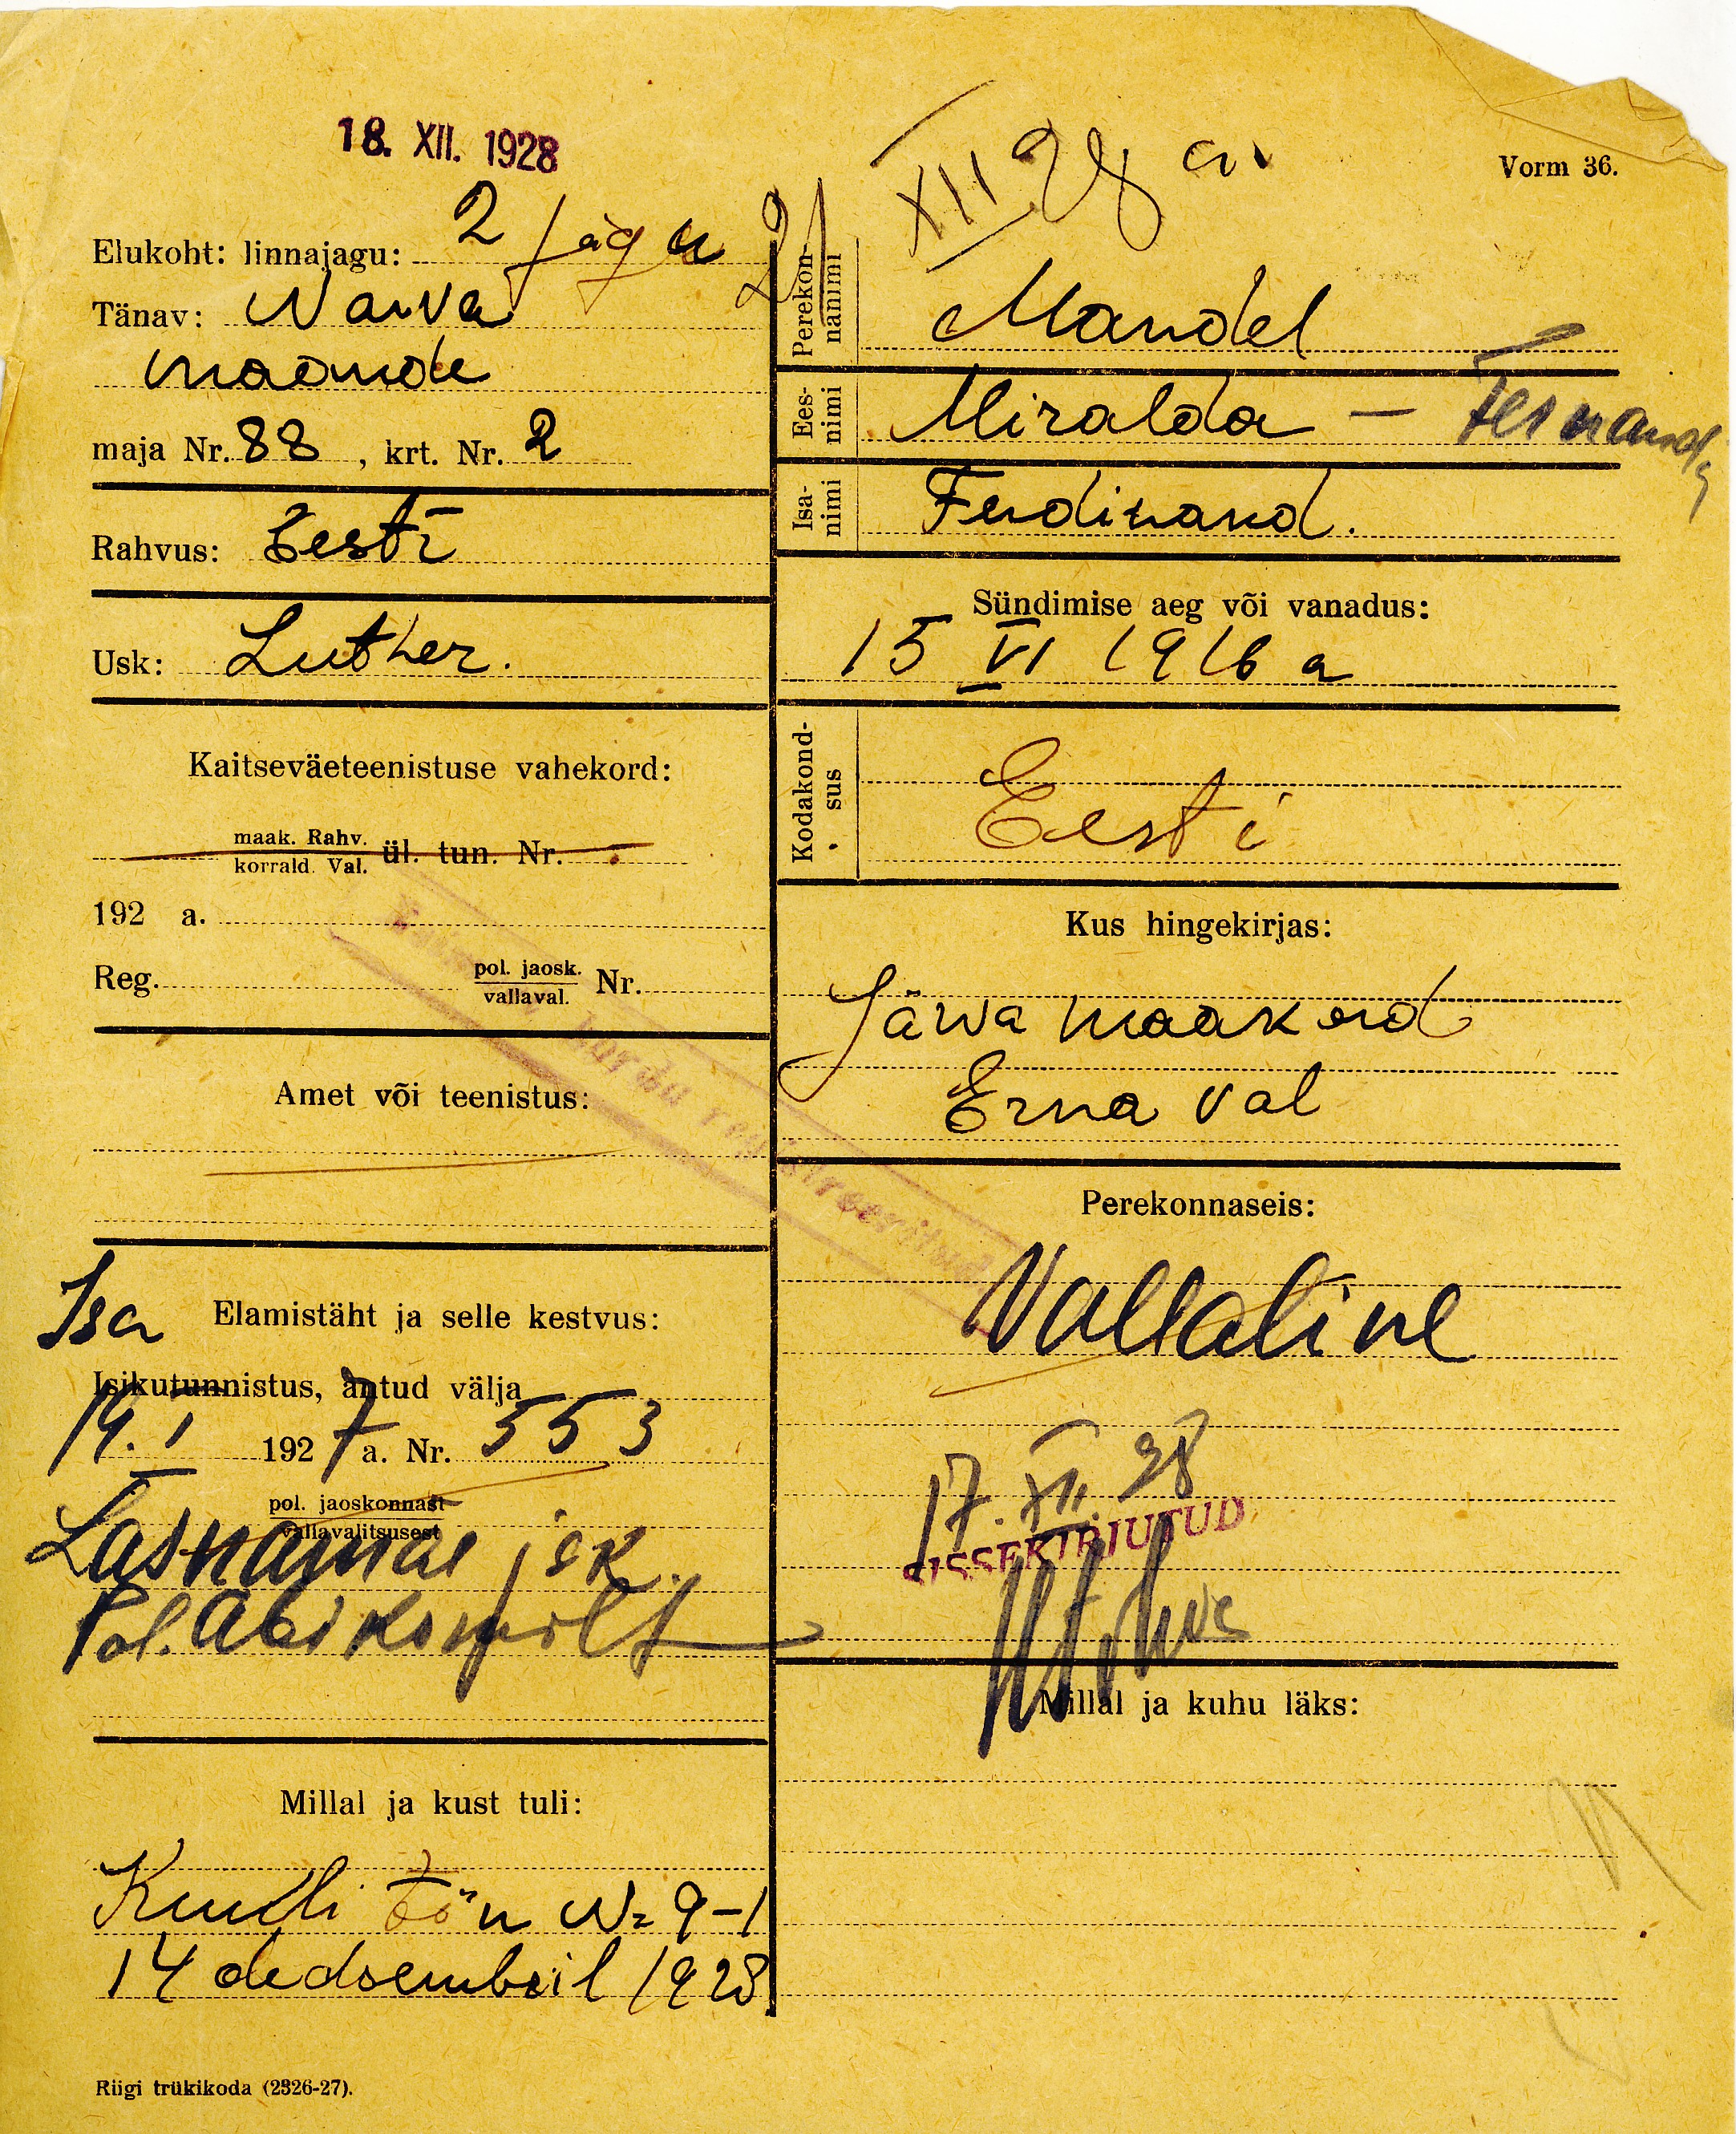 18. XII. 1928
XII 28 a.
Vorm 36.
Elukoht: linnajagu: 2 jagu
Tänav: Narva
maande
maja Nr. 88, krt. Nr. 2
Rahvus: Eesti
Usk: Luther.
Kaitseväeteenistuse vahekord:
maak. Rahv.
korrald. Val. ül. tun. Nr.
192 a.
Reg. pol. jaosk.
vallaval. Nr.
Amet või teenistus:
Isa Elamistäht ja selle kestvus:
Isikutunnistus, antud välja
14. I 1927 a. Nr. 553
pol. jaoskonnast
vallavalitsusest
Lasnamäe jsk.
Pol.
Millal ja kust tuli:
tän N= 9-1
14 dedsembril 1928
Riigi trükikoda (2326-27).
Perekon-
nanimi
Mandel
Ees-
nimi
Miralda —
Isa-
nimi
Ferdinand.
Sündimise aeg või vanadus:
15 VI 1916 a
Kodakond-
sus
Eesti
Kus hingekirjas:
Järva maakond
Erna val
Perekonnaseis:
Vallaline
17. XII. 28
SISSEKIRJUTUD
Millal ja kuhu läks: